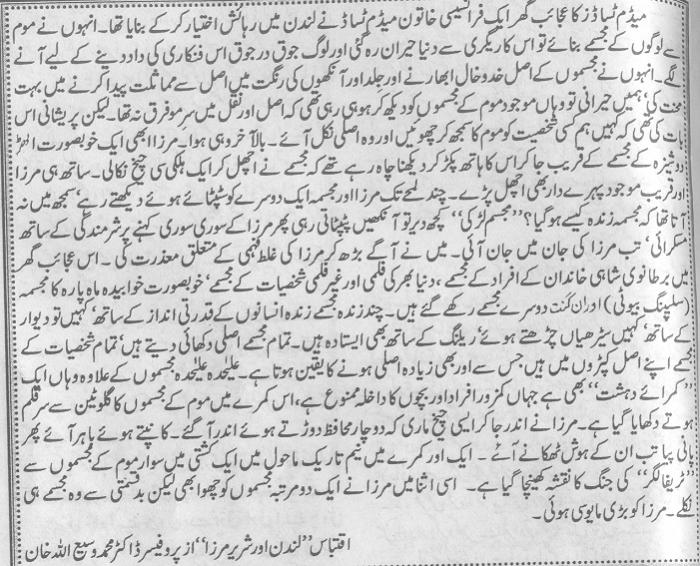 میڈم تساڈز کا عجائب گھر ایک فرانسیسی خاتون میڈم تساڈ نے لندن میں رہائش اختیار کر کے بنایا تھا۔ انہوں نے موم
سے لوگوں کے مجسمے بنائے تو اس کاریگری سے دنیا حیران رہ گئی اور لوگ جوق در جوق اس فنکاری کی داد دینے کے لیے آنے
لگے۔ انہوں نے مجسموں کے اصل خدوخال ابھارنے اور جلد اور آنکھوں کی رنگت میں اصل سے مماثلت پیدا کرنے میں بہت
محنت کی‘ ہمیں حیرانی تو وہاں موجود موم کے مجسموں کو دیکھ کر ہو ہی رہی تھی کہ اصل اور نقل میں سرِ مو فرق نہ تھا۔ لیکن پریشانی اس
بات کی تھی کہ کہیں ہم کسی شخصیت کو موم کا سمجھ کر چھوئیں اور وہ اصلی نکل آئے۔ بالآخر وہی ہوا۔ مرزا بھی ایک خوبصورت الھڑ
دوشیزہ کے مجسمے کے قریب جا کر اس کا ہاتھ پکڑ کر دیکھنا چاہ رہے تھے کہ مجسمے نے اچھل کر ایک ہلکی سی چیخ نکالی۔ ساتھ ہی مرزا
اور قریب موجود پہرے دار بھی اچھل پڑے۔ چند لمحے تک مرزا اور مجسمہ ایک دوسرے کو سٹپٹائے ہوئے دیکھتے رہے‘ سمجھ میں نہ
آتا تھا کہ مجسمہ زندہ کیسے ہو گیا؟ ’’مجسم لڑکی‘‘ کچھ دیر تو آنکھیں پٹپٹاتی رہی پھر مرزا کے سوری سوری کہنے پر شرمندگی کے ساتھ
مسکرائی‘ تب مرزا کی جان میں جان آئی۔ میں نے آگے بڑھ کر مرزا کی غلط فہمی کے متعلق معذرت کی۔ اس عجائب گھر
میں برطانوی شاہی خاندان کے افراد کے مجسمے، دنیا بھر کی فلمی اور غیر فلمی شخصیات کے مجسمے‘ خوبصورت خوابیدہ ماہ پارہ کا مجسمہ
(سلیپنگ بیوٹی) اور ان گنت دوسرے مجسمے رکھے گئے ہیں۔ چند زندہ مجسمے زندہ انسانوں کے قدرتی انداز کے ساتھ‘ کہیں تو دیوار
کے ساتھ‘ کہیں سیڑھیاں چڑھتے ہوئے‘ ریلنگ کے ساتھ بھی ایستادہ ہیں۔ تمام مجسمے اصلی دکھائی دیتے ہیں‘ تمام شخصیات کے
مجسمے اپنے اصل کپڑوں میں ہیں‘ جس سے اور بھی زیادہ اصلی ہونے کا یقین ہوتا ہے۔ علیٰحدہ علیٰحدہ مجسموں کے علاوہ وہاں ایک
’’کمرائے دہشت‘‘ بھی ہے جہاں کمزور افراد اور بچوں کا داخلہ ممنوع ہے، اس کمرے میں موم کے مجسموں کا گلوٹین سے سر قلم
ہوتے دکھایا گیا ہے۔ مرزا نے اندر جا کر ایسی چیخ ماری کہ دو چار محافظ دوڑتے ہوئے اندر آ گئے۔ کانپتے ہوئے باہر آئے پھر
پانی پیا تب ان کے ہوش ٹھکانے آئے۔ ایک اور کمرے میں نیم تاریک ماحول میں ایک کشتی میں سوار موم کے مجسموں سے
’’ٹریفالگر‘‘ کی جنگ کا نقشہ کھینچا گیا ہے۔ اسی اثنا میں مرزا نے ایک دو مرتبہ مجسموں کو چھوا بھی لیکن بدقسمتی سے وہ مجسمے ہی
نکلے۔ مرزا کو بڑی مایوسی ہوئی۔
اقتباس ’’لندن اور شریر مرزا‘‘ از پروفیسر ڈاکٹر محمد وسیع اللہ خان